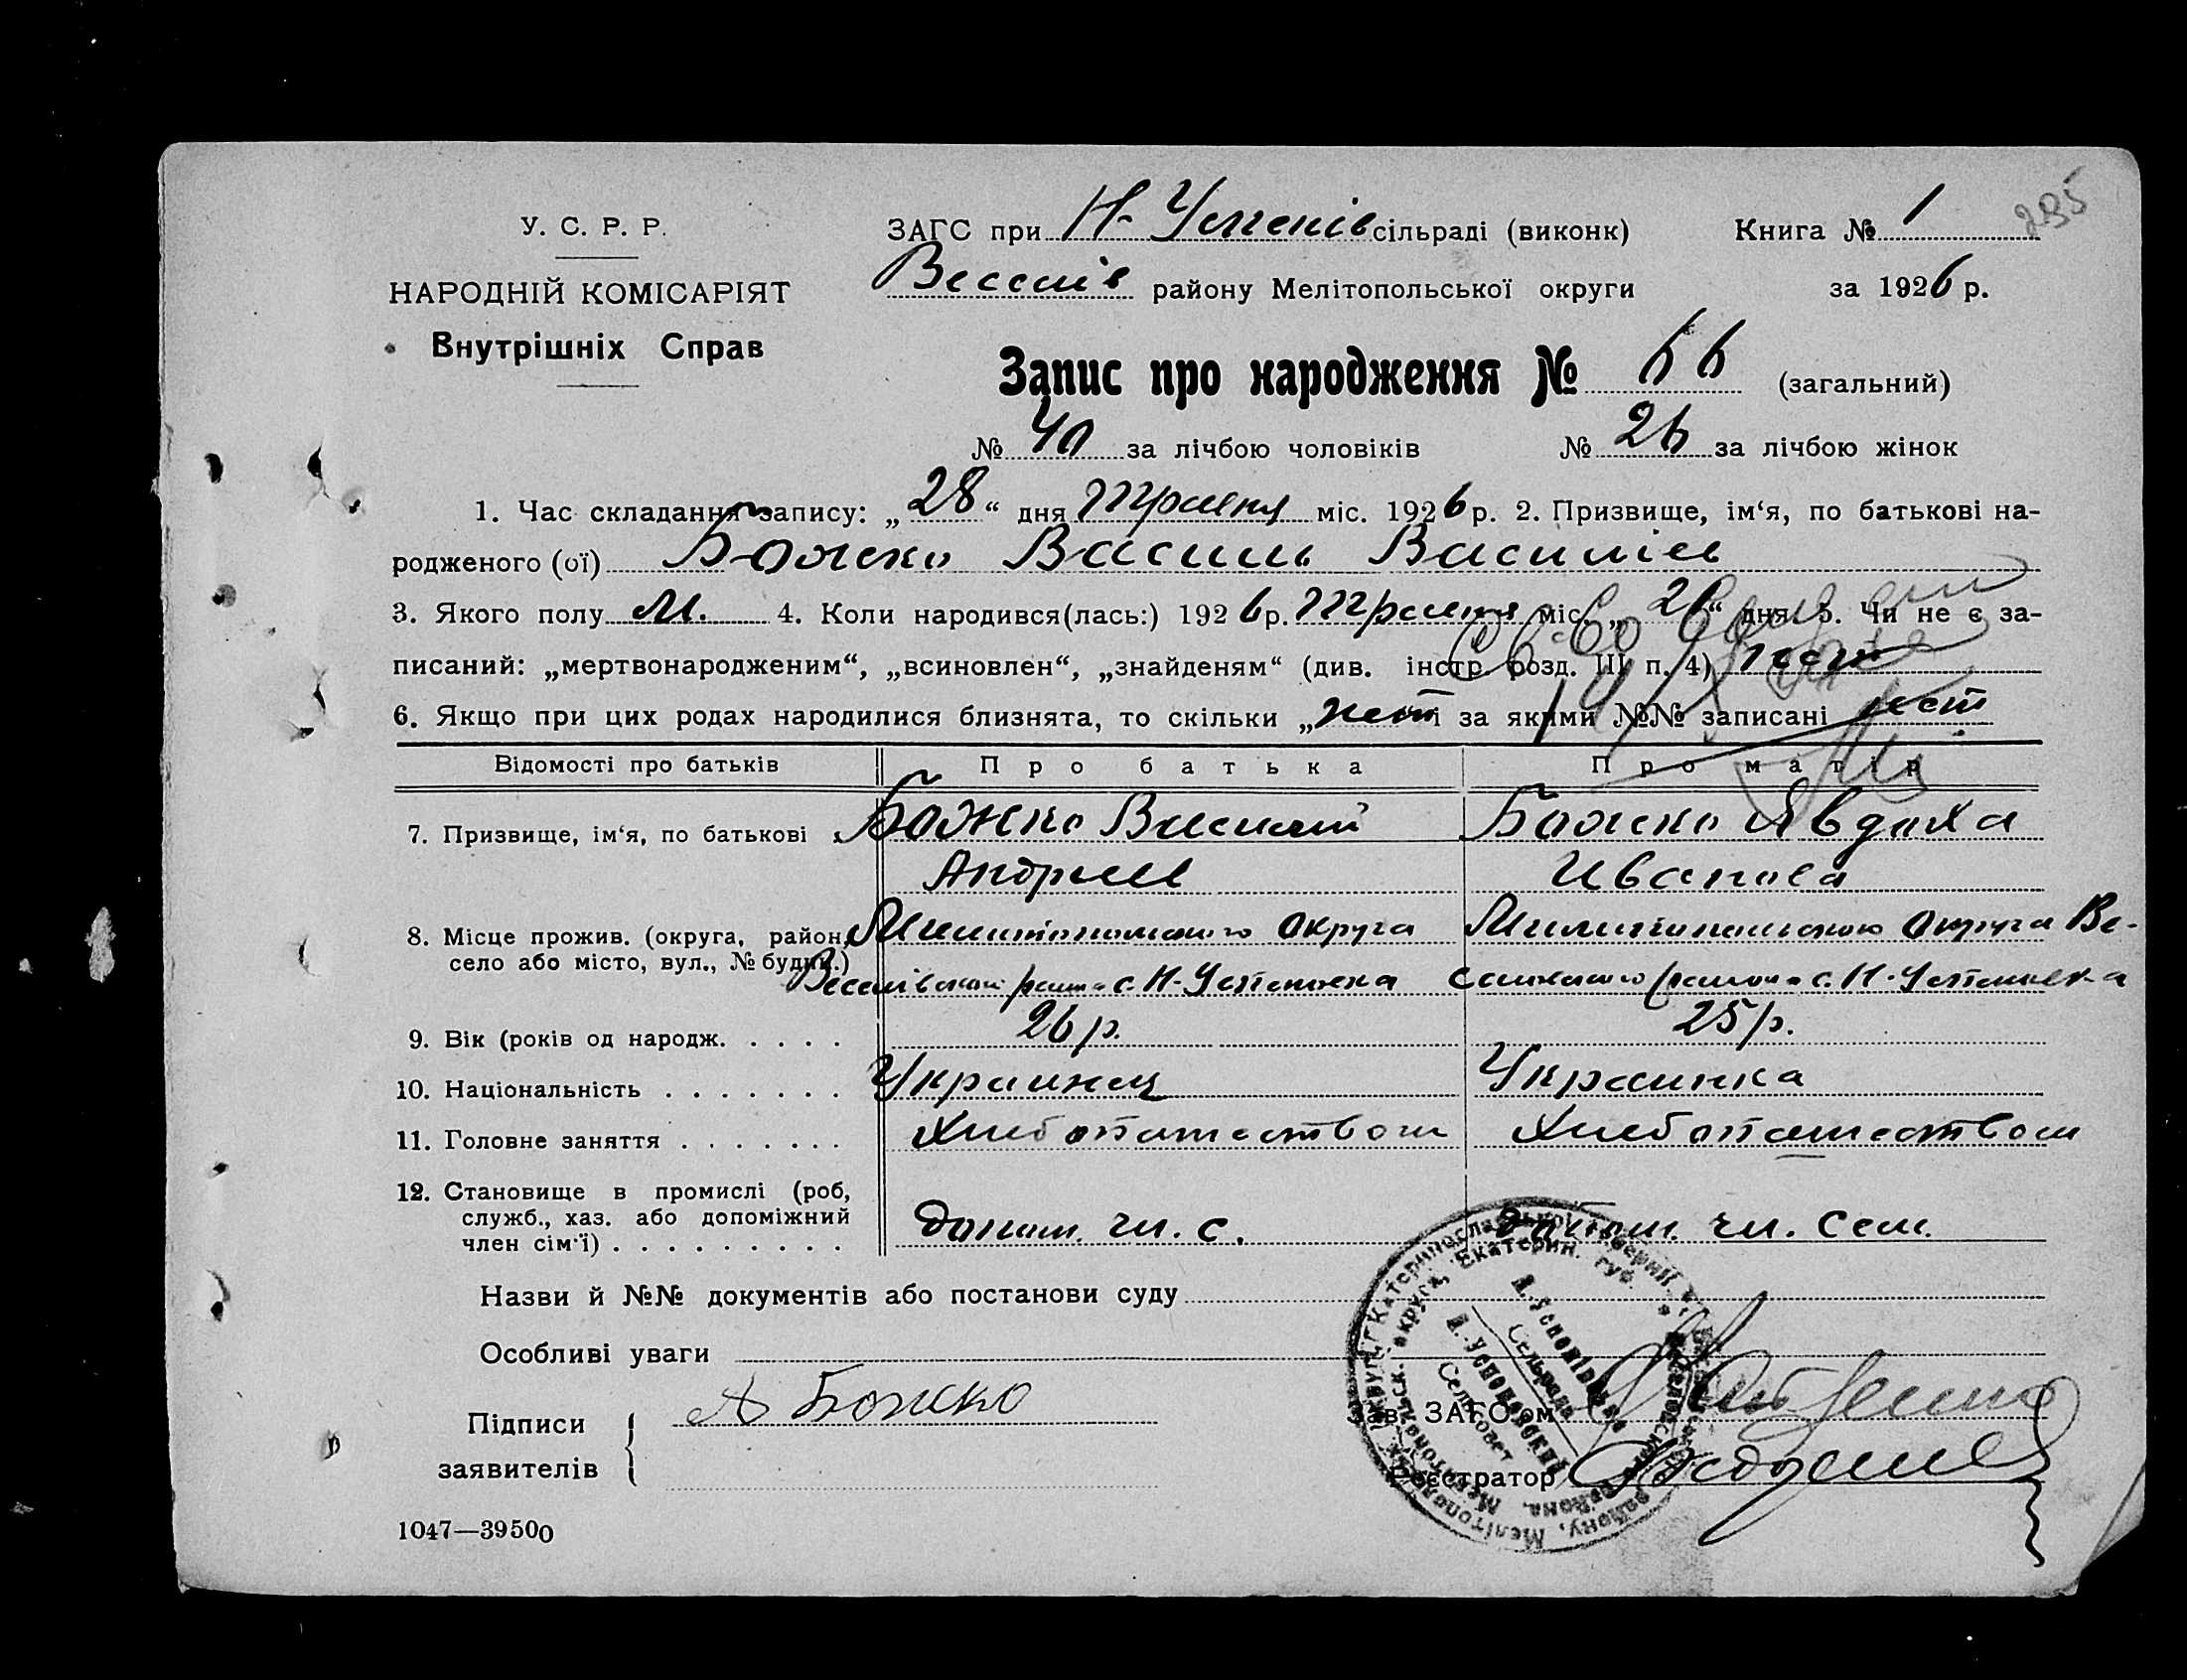 235
У. С. Р. Р.
НАРОДНІЙ КОМІСАРІЯТ
Внутрішніх Справ
ЗАГС при Н-Успенів сільраді (виконк)
Веселів району Мелітопольської округи
Книга № 1
за 1926 р.
Запис про народження № 66 (загальний)
№ 40 за лічбою чоловіків № 26 за лічбою жінок
1. Час складання запису: „28“ дня Травня міс. 1926 р. 2. Призвище, ім‘я, по батькові на-
родженого (ої) Божко Василь Василіев
3. Якого полу М. 4. Коли народився(лась:) 1926 р. Травня міс. „26“ дня. 5. Чи не є за-
писаний: „мертвонародженим“, „всиновлен“, „знайденям“ (див. інстр. розд. III п. 4) нет
6. Якщо при цих родах народилися близнята, то скільки „нет і за якими №№ записані нет
Відомості про батьків Про батька Про матір
7. Призвище, ім‘я, по батькові Божко Василий Божко Явдоха
Андреев Иванова
8. Місце прожив. (округа, район, Мелитопольського Округа Мелитопольского Округа Ве-
село або місто, вул., № будин.) Веселівский района с. Н-Успеновка селовского района с. Н-Успеновка
9. Вік (років од народж. . . . . 26 р. 25 р.
10. Національність . . . . . . . Украинец Украинка
11. Головне заняття . . . . . . . Хлебопашеством Хлебопашеством
12. Становище в промислі (роб,
служб., хаз. або допоміжний допом. чл. с. допом. чл. сем.
член сім‘ї) . . . . . . . . .
Назви й №№ документів або постанови суду
Особливі уваги
Підписи А Божко
заявителів
Зав. ЗАГС‘ом
Реєстратор
1047—39500